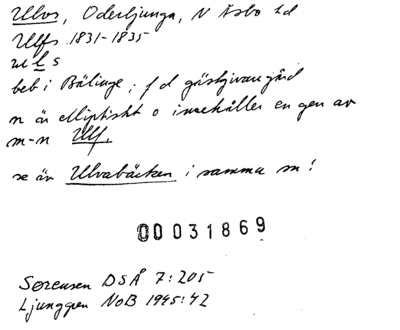 Ulvs, Oderljunga, N Åsbo hd
Ulfs 1831-1835
uls
beb i Bälinge; f d gästgivaregård
n är elliptiskt o innehåller en gen av
m-n Ulf.
se äv Ulvabäcken i samma sn!
00031869
Sørensen DSÅ 7:205
Ljunggren NoB 1945:42